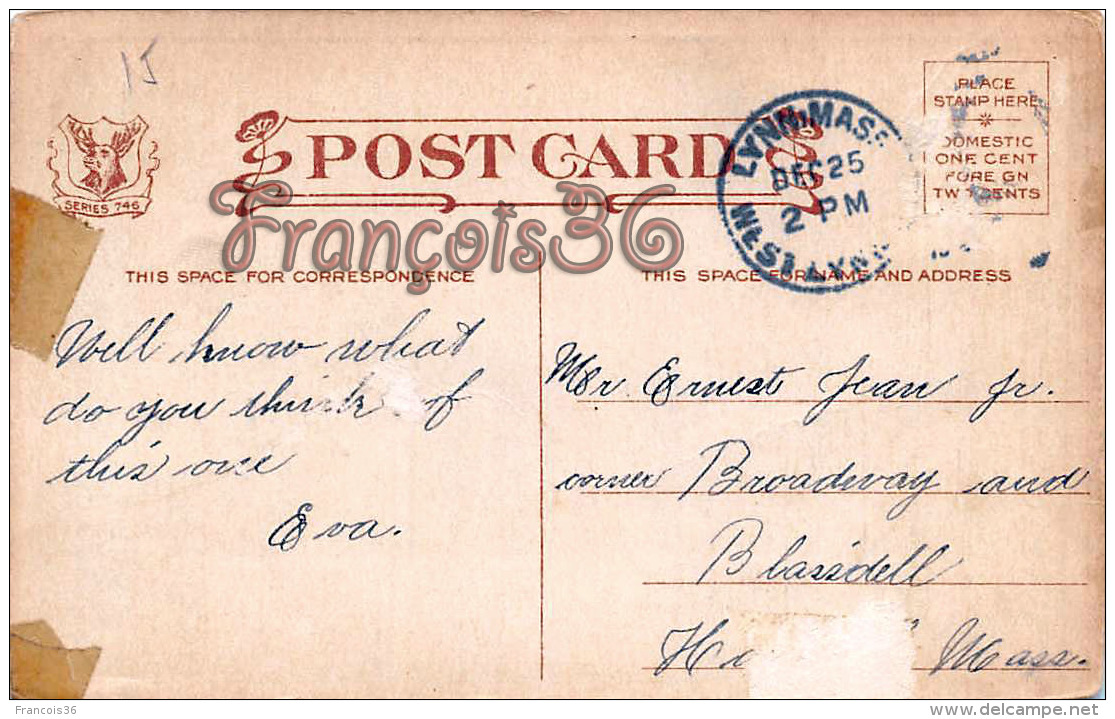 15
POST CARD
SERIES 746
LYNN MASS
DEC 25
2 PM
WEST LYNN
PLACE
STAMP HERE
DOMESTIC
ONE CENT
FOREIGN
TWO CENTS
François36
THIS SPACE FOR CORRESPONDENCE
THIS SPACE FOR NAME AND ADDRESS
Well know what
do you think of
this one
Eva.
Mr Ernest Jean Jr.
corner Broadway and
Blaisdell
Mass.
François36
www.delcampe.net